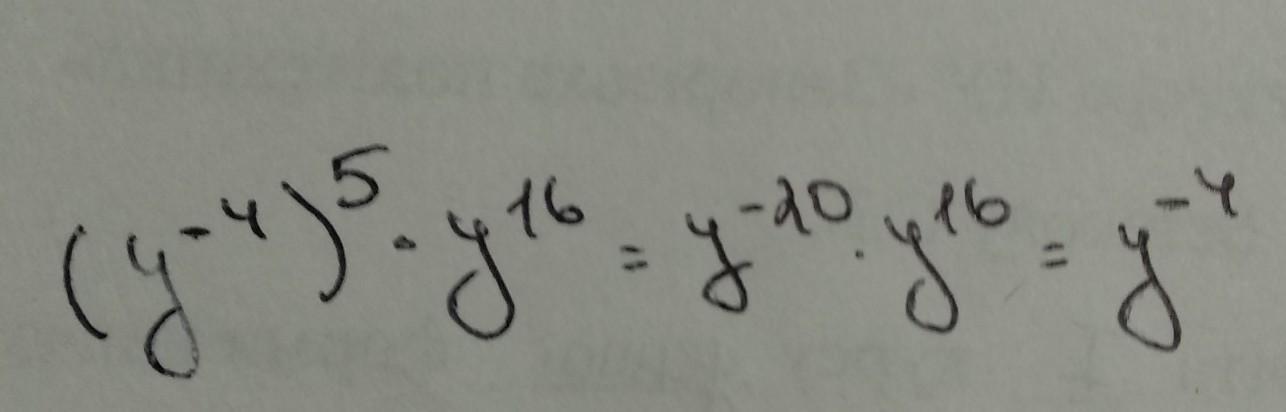 (y⁻⁴)⁵ · y¹⁶ = y⁻²⁰ · y¹⁶ = y⁻⁴